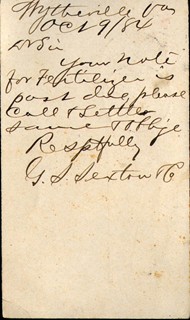 Wytheville Va
Oct 9/84
Dr Sir
Your Note
for Fertilizer is
past due please
Call & Settle
same & oblige
Respttfully
G. S Sexton & Co